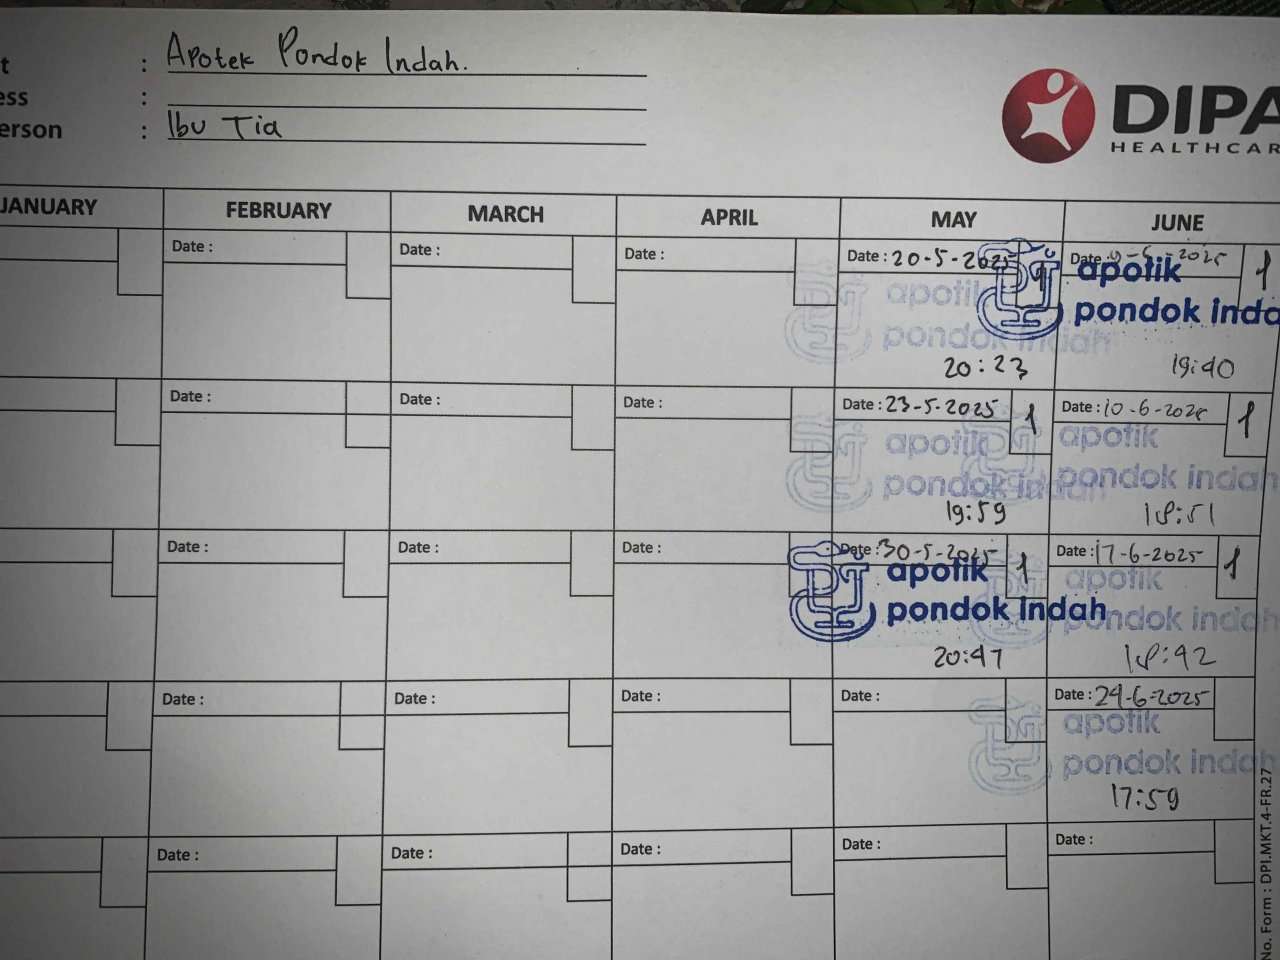 t : Apotek Pondok Indah.
ess :
erson : Ibu Tia
DIPA
HEALTHCAR
JANUARY FEBRUARY MARCH APRIL MAY JUNE
Date : Date : Date : Date : 20-5-2025 1 Date : -2025 1
apotik apotik
pondok indah pondok inda
20:23 19:40
Date : Date : Date : Date : 23-5-2025 1 Date : 10-6-2025 1
apotik apotik
pondok indah pondok indah
19:59 18:51
Date : Date : Date : Date : 30-5-2025 1 Date : 17-6-2025 1
apotik apotik
pondok indah pondok indah
20:47 18:42
Date : Date : Date : Date : Date : 24-6-2025
apotik
pondok indah
17:59
Date : Date : Date : Date : Date :
No. Form : DPI.MKT.4-FR.27